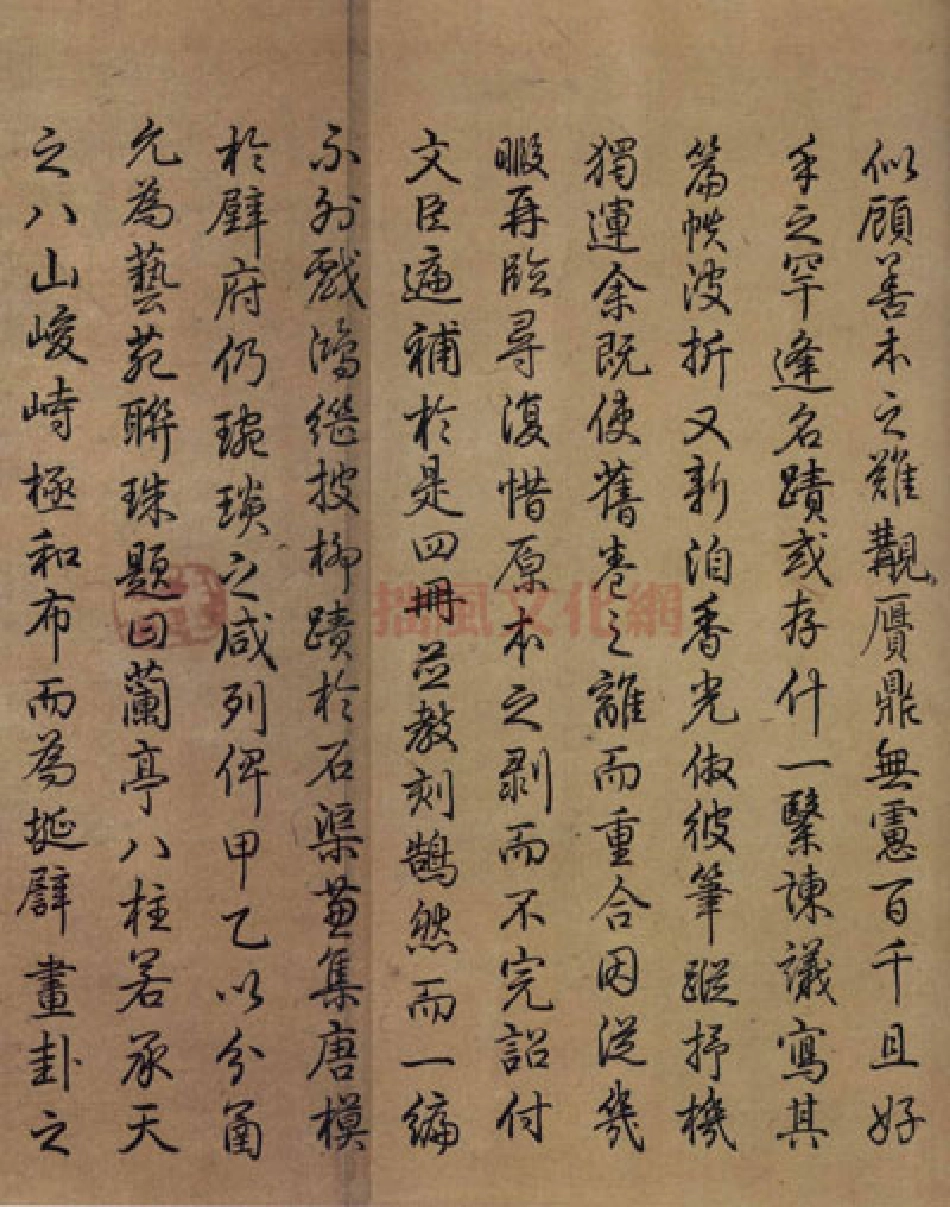 似顧善本之難覯贋鼎無慮百千且好
手之罕逢名蹟或存什一繄諫議寫其
篇帙波折又新洎香光倣彼筆蹤抒機
獨運余既使舊卷之離而重合因從幾
暇再臨尋復惜原本之剥而不完詔付
文臣遍補於是四冊並教刻鵠然而一編
不列戲鴻繼披柳蹟於石渠兼集唐模
於壁府仍琬琰之咸列俾甲乙以分函
允為藝苑聯珠題曰蘭亭八柱若承天
之八山峻峙極和布而為埏辟畫卦之
拙風文化網